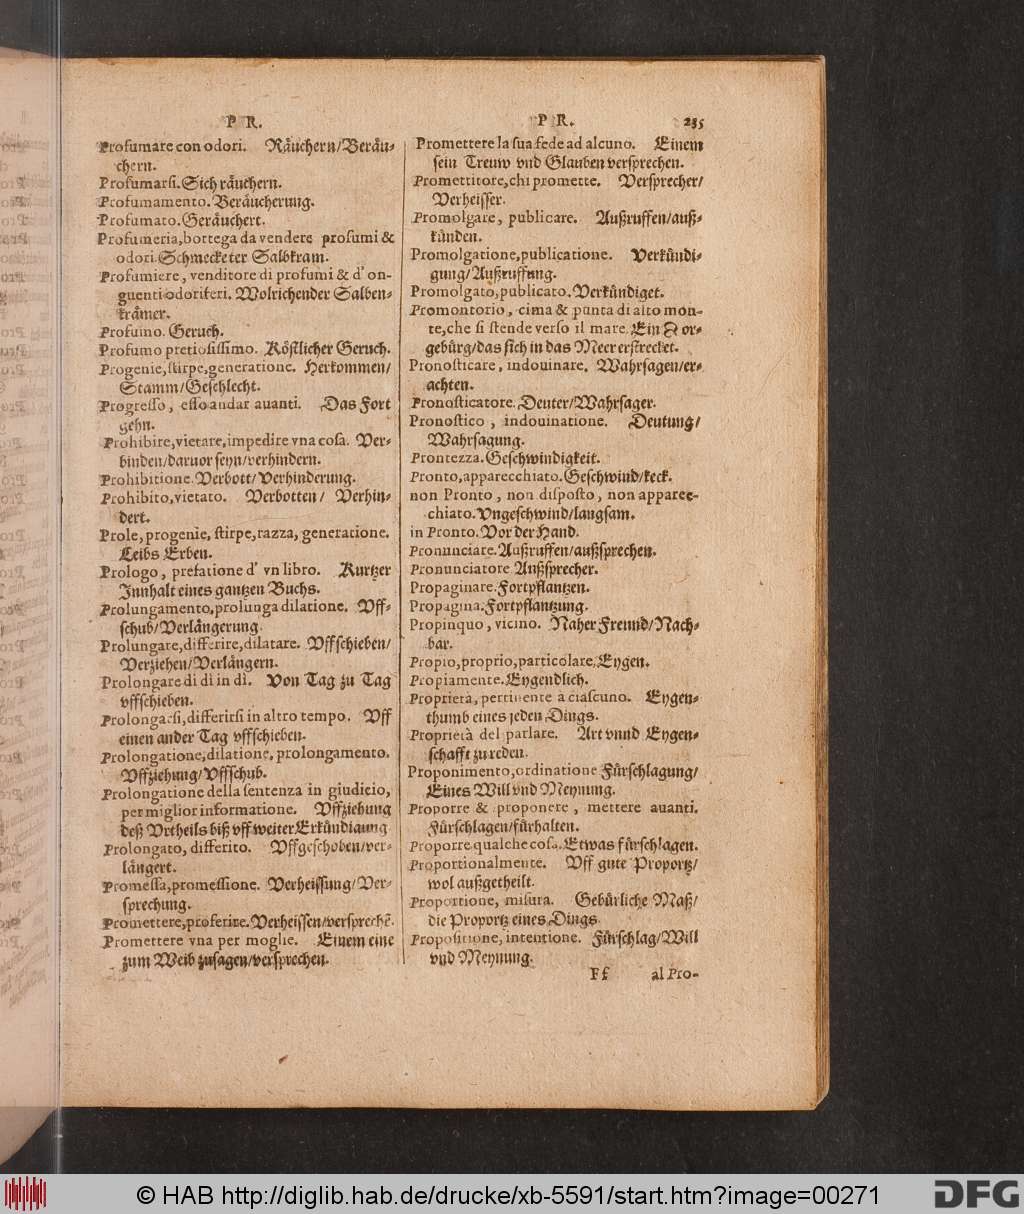 P R.
Profumare con odori. Räuchern/Beräu-
chern.
Profumarsi. Sich räuchern.
Profumamento. Beräucherung.
Profumato. Geräuchert.
Profumeria, bottega da vendere profumi &
odori. Schmecketer Salbkram.
Profumiere, venditore di profumi & d' on-
guenti odoriferi. Wolrichender Salben-
krämer.
Profumo. Geruch.
Profumo pretiosissimo. Köstlicher Geruch.
Progenie, stirpe, generatione. Herkommen/
Stamm/Geschlecht.
Progresso, esso andar auanti. Das Fort
gehn.
Prohibire, vietare, impedire vna cosa. Ver-
binden/daruor seyn/verhindern.
Prohibitione. Verbott/Verhinderung.
Prohibito, vietato. Verbotten/ Verhin-
dert.
Prole, progenie, stirpe, razza, generatione.
Leibs Erben.
Prologo, prefatione d' vn libro. Kurtzer
Innhalt eines gantzen Buchs.
Prolungamento, prolunga dilatione. Vff-
schub/Verlängerung.
Prolungare, differire, dilatare. Vffschieben/
Verziehen/Verlängern.
Prolongare di dì in dì. Von Tag zu Tag
vffschieben.
Prolongarsi, differirsi in altro tempo. Vff
einen ander Tag vffschieben.
Prolongatione, dilatione, prolongamento.
Vffziehung/Vffschub.
Prolongatione della sentenza in giudicio,
per miglior informatione. Vffziehung
deß Vrtheils biß vff weiter Erkündigung
Prolongato, differito. Vffgeschoben/ver-
längert.
Promessa, promessione. Verheissung/Ver-
sprechung.
Promettere, proferire. Verheissen/versprechẽ.
Promettere vna per moglie. Einem eine
zum Weib zusagen/versprechen.
P R. 235
Promettere la sua fede ad alcuno. Einem
sein Treuw vnd Glauben versprechen.
Promettitore, chi promette. Versprecher/
Verheisser.
Promolgare, publicare. Außruffen/auß-
künden.
Promolgatione, publicatione. Verkündi-
gung/Außruffung.
Promolgato, publicato. Verkündiget.
Promontorio, cima & punta di alto mon-
te, che si stende verso il mare. Ein Vor-
gebürg/das sich in das Meer erstrecket.
Pronosticare, indouinare. Wahrsagen/er-
achten.
Pronosticatore. Deuter/Wahrsager.
Pronostico, indouinatione. Deutung/
Wahrsagung.
Prontezza. Geschwindigkeit.
Pronto, apparecchiato. Geschwind/keck.
non Pronto, non disposto, non apparec-
chiato. Vngeschwind/langsam.
in Pronto. Vor der Hand.
Pronunciare. Außruffen/außsprechen.
Pronunciatore Außsprecher.
Propaginare. Fortpflantzen.
Propagina. Fortpflantzung.
Propinquo, vicino. Naher Freund/Nach-
bar.
Propio, proprio, particolare. Eygen.
Propiamente. Eygendlich.
Proprietà, pertinente à ciascuno. Eygen-
thumb eines jeden Dings.
Proprietà del parlare. Art vnnd Eygen-
schafft zu reden.
Proponimento, ordinatione Fürschlagung/
Eines Will vnd Meynung.
Proporre & proponere, mettere auanti.
Fürschlagen/fürhalten.
Proporre qualche cosa. Etwas fürschlagen.
Proportionalmente. Vff gute Proportz/
wol außgetheilt.
Proportione, misura. Gebürliche Maß/
die Proportz eines Dings
Propositione, intentione. Fürschlag/Will
vnd Meynung.
Ff al Pro-
© HAB http://diglib.hab.de/drucke/xb-5591/start.htm?image=00271
DFG